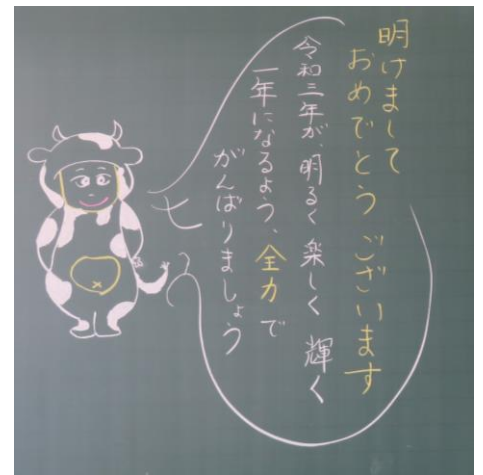 明けまして
おめでとうございます
令和三年が、明るく楽しく輝く
一年になるよう、全力で
がんばりましょう